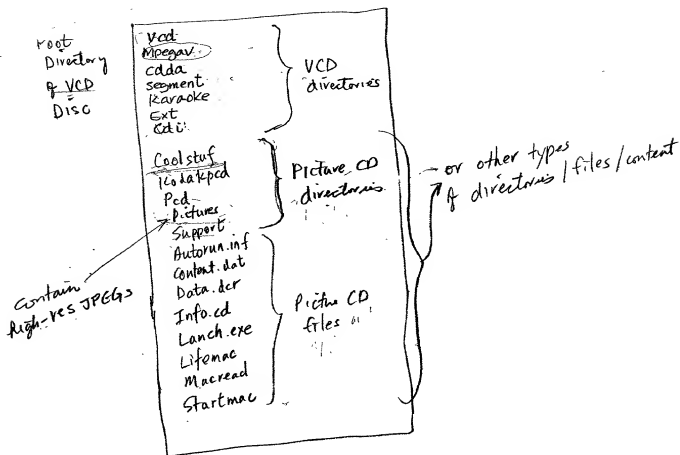 root
Directory
of VCD
Disc
Vcd
Mpegav
cdda
segment
Karaoke
Ext
Cdi
VCD
directories
Coolstuf
Kodakpcd
Pcd
Pictures
Support
Picture CD
directories
Autorun.inf
Content.dat
Data.dcr
Info.cd
Lanch.exe
Lifemac
Macread
Startmac
Picture CD
files
— or other types
of directories / files / content
contain
high-res JPEGs